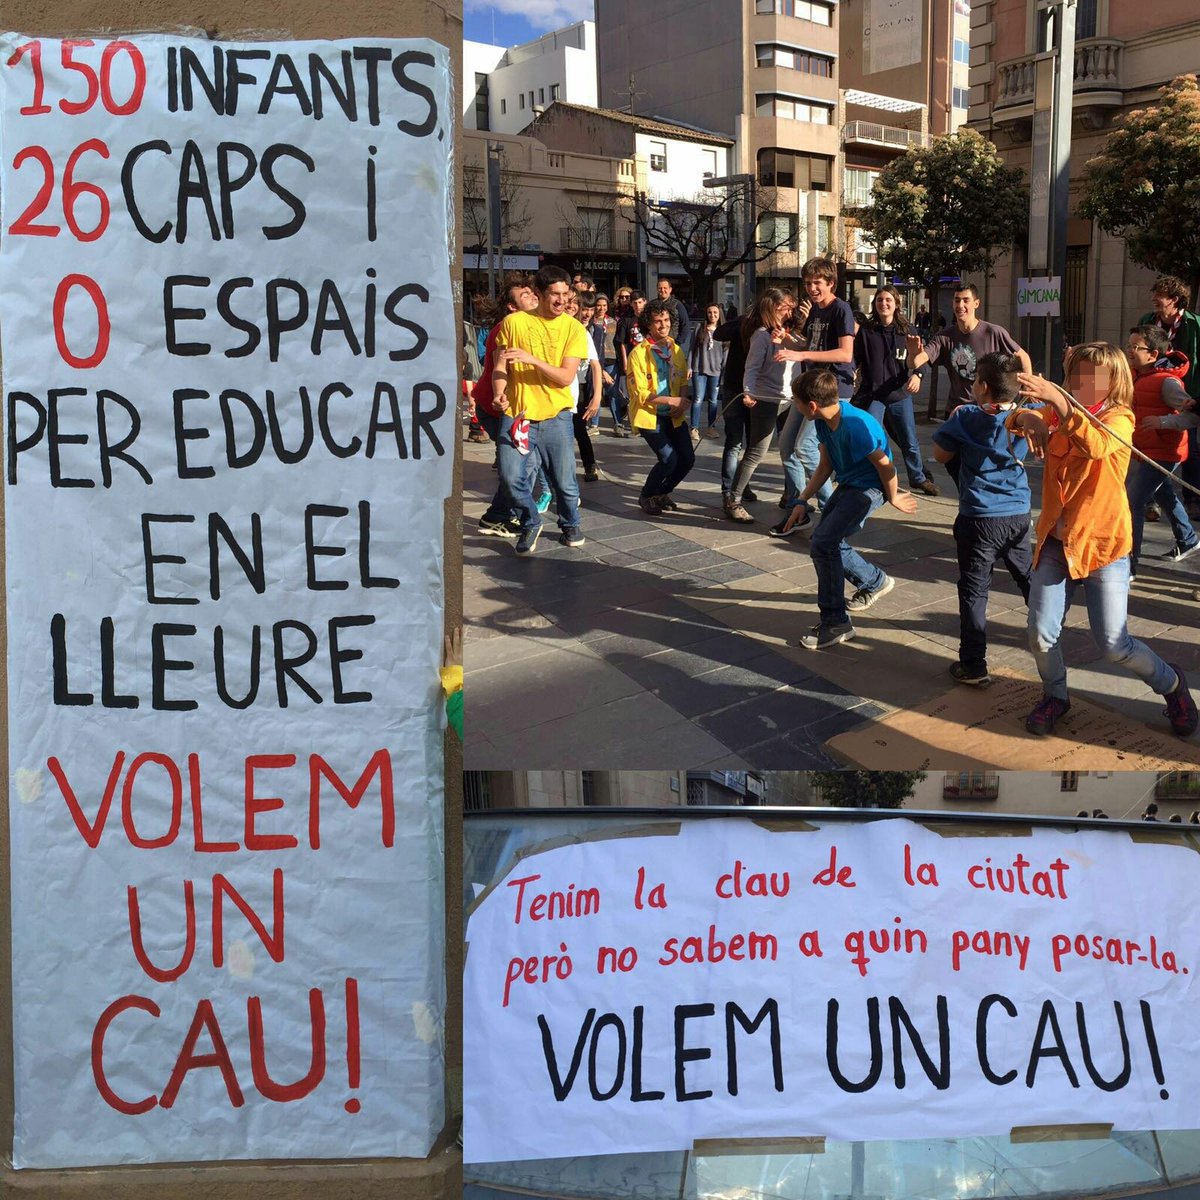 150 INFANTS,
26 CAPS i
0 ESPAiS
PER EDUCAR
EN EL
LLEURE
VOLEM
UN
CAU!
GIMCANA
Tenim la clau de la ciutat
però no sabem a quin pany posar-la.
VOLEM UN CAU!